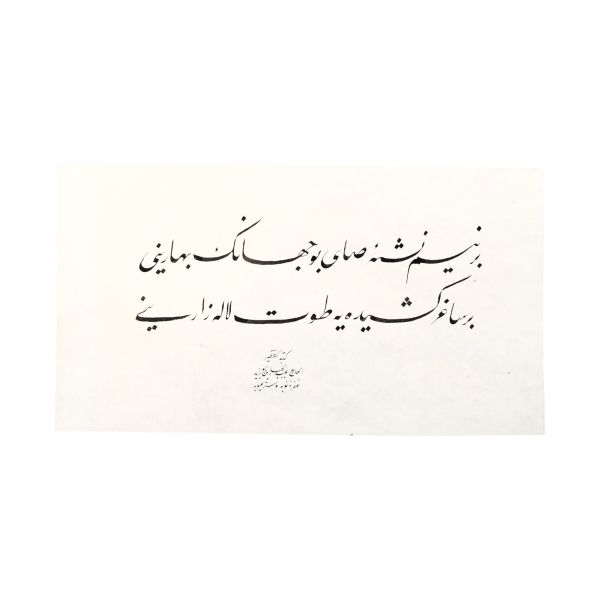 بر نیم نشئه صای بو جهانك بهارینی
بر ساغر كشیده یه طوت لاله زارینی
كتبه الفقیر